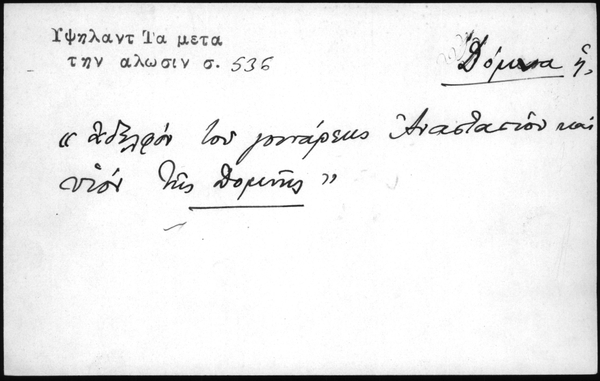 Υψηλαντ Τα μετα
την αλωσιν σ. 536
Δόμνα ἡ,
« ἀδελφόν του γουνάρεως Ἀναστασίου καὶ
υἱόν τῆς Δομνῆς »